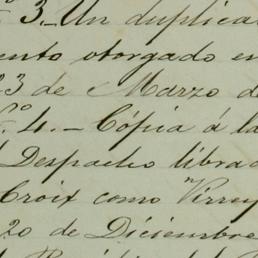 o 3. Un duplica
ento otorgado en
23 de Marzo de
o 4. — Cópia á la
Despacho librad
Croix como Virrey
20 de Diciembre